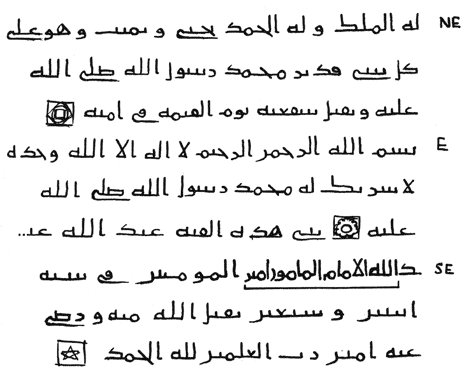 له الملك و له الحمد يحيى و يميت و هو على NE
كل شى قدير محمد رسول الله صلى الله
عليه و تقبل شفعته يوم القيمه فى امته
بسم الله الرحمن الرحيم لا اله الا الله وحده E
لا شريك له محمد رسول الله صلى الله
عليه بنى هذه القبه عبد الله عبـ...
ـد الله الامام المامون امير المومنين فى سنه SE
اثنتين و سبعين تقبل الله منه و رضى
عنه امين رب العلمين لله الحمد